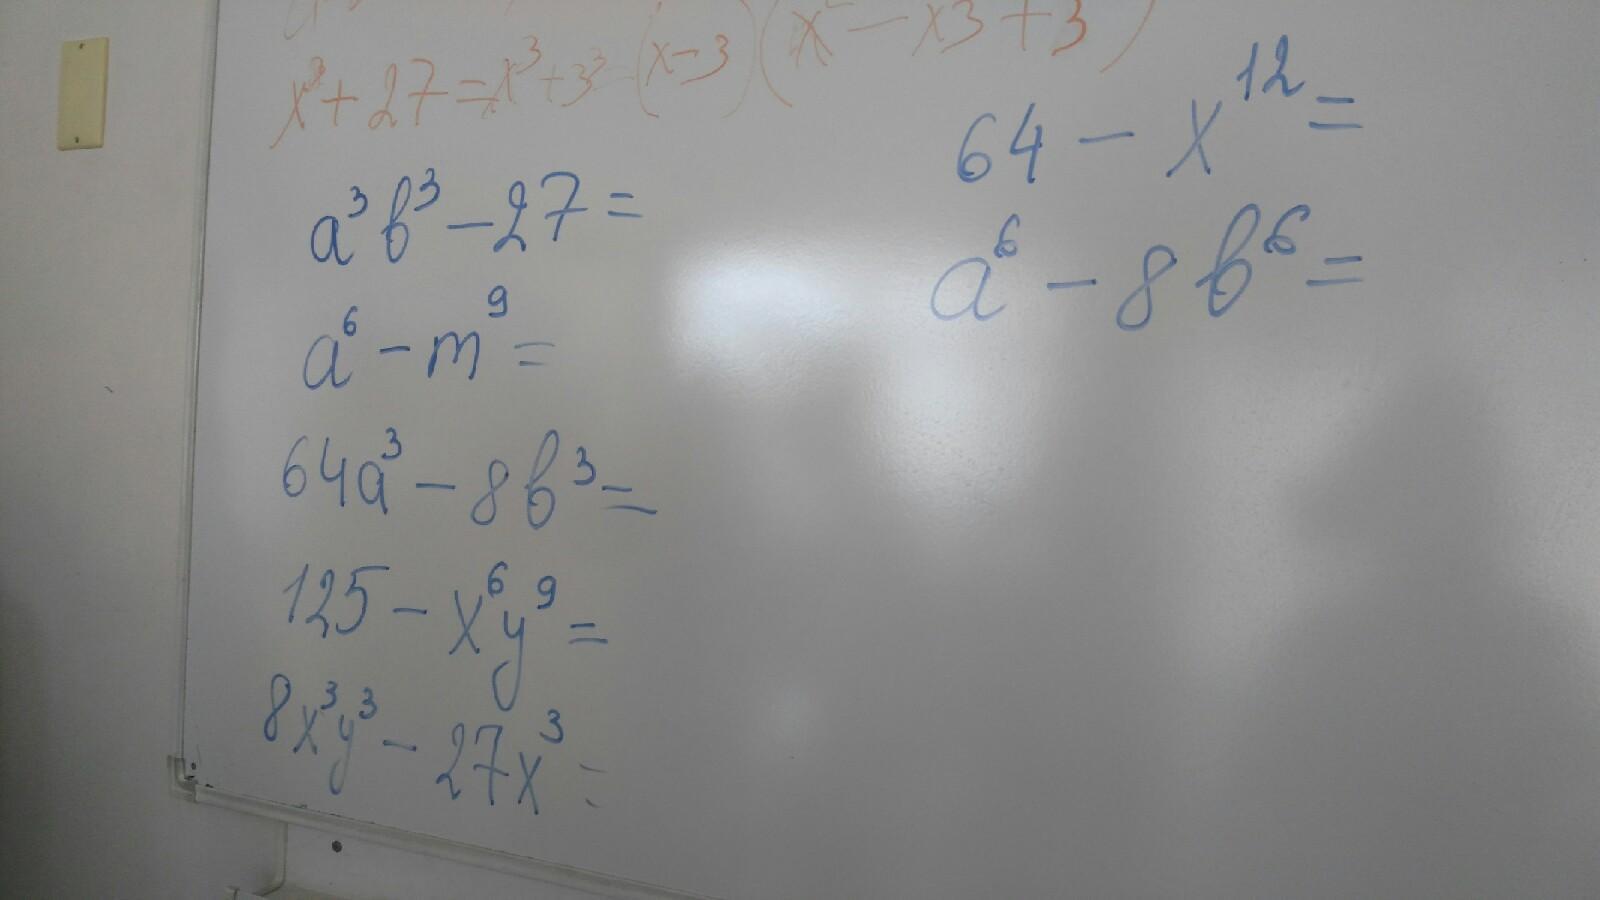 x³ + 27 = x³ + 3³ = (x - 3)(x² - x3 + 3
a³b³ - 27 =
a⁶ - m⁹ =
64a³ - 8b³ =
125 - x⁶y⁹ =
8x³y³ - 27x³ =
64 - x¹² =
a⁶ - 8b⁶ =